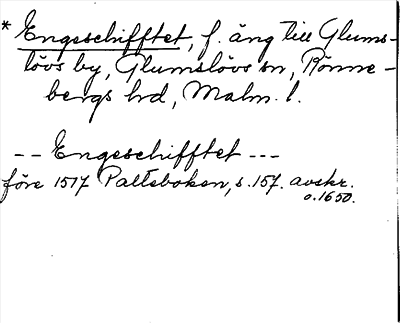 * Engeschifftet, f. äng till Glums-
lövs by, Glumslövs sn, Rönne-
bergs hd, Malm. l.
-- Engeschifftet ---
före 1517 Palteboken, s. 157. avskr.
o. 1650.